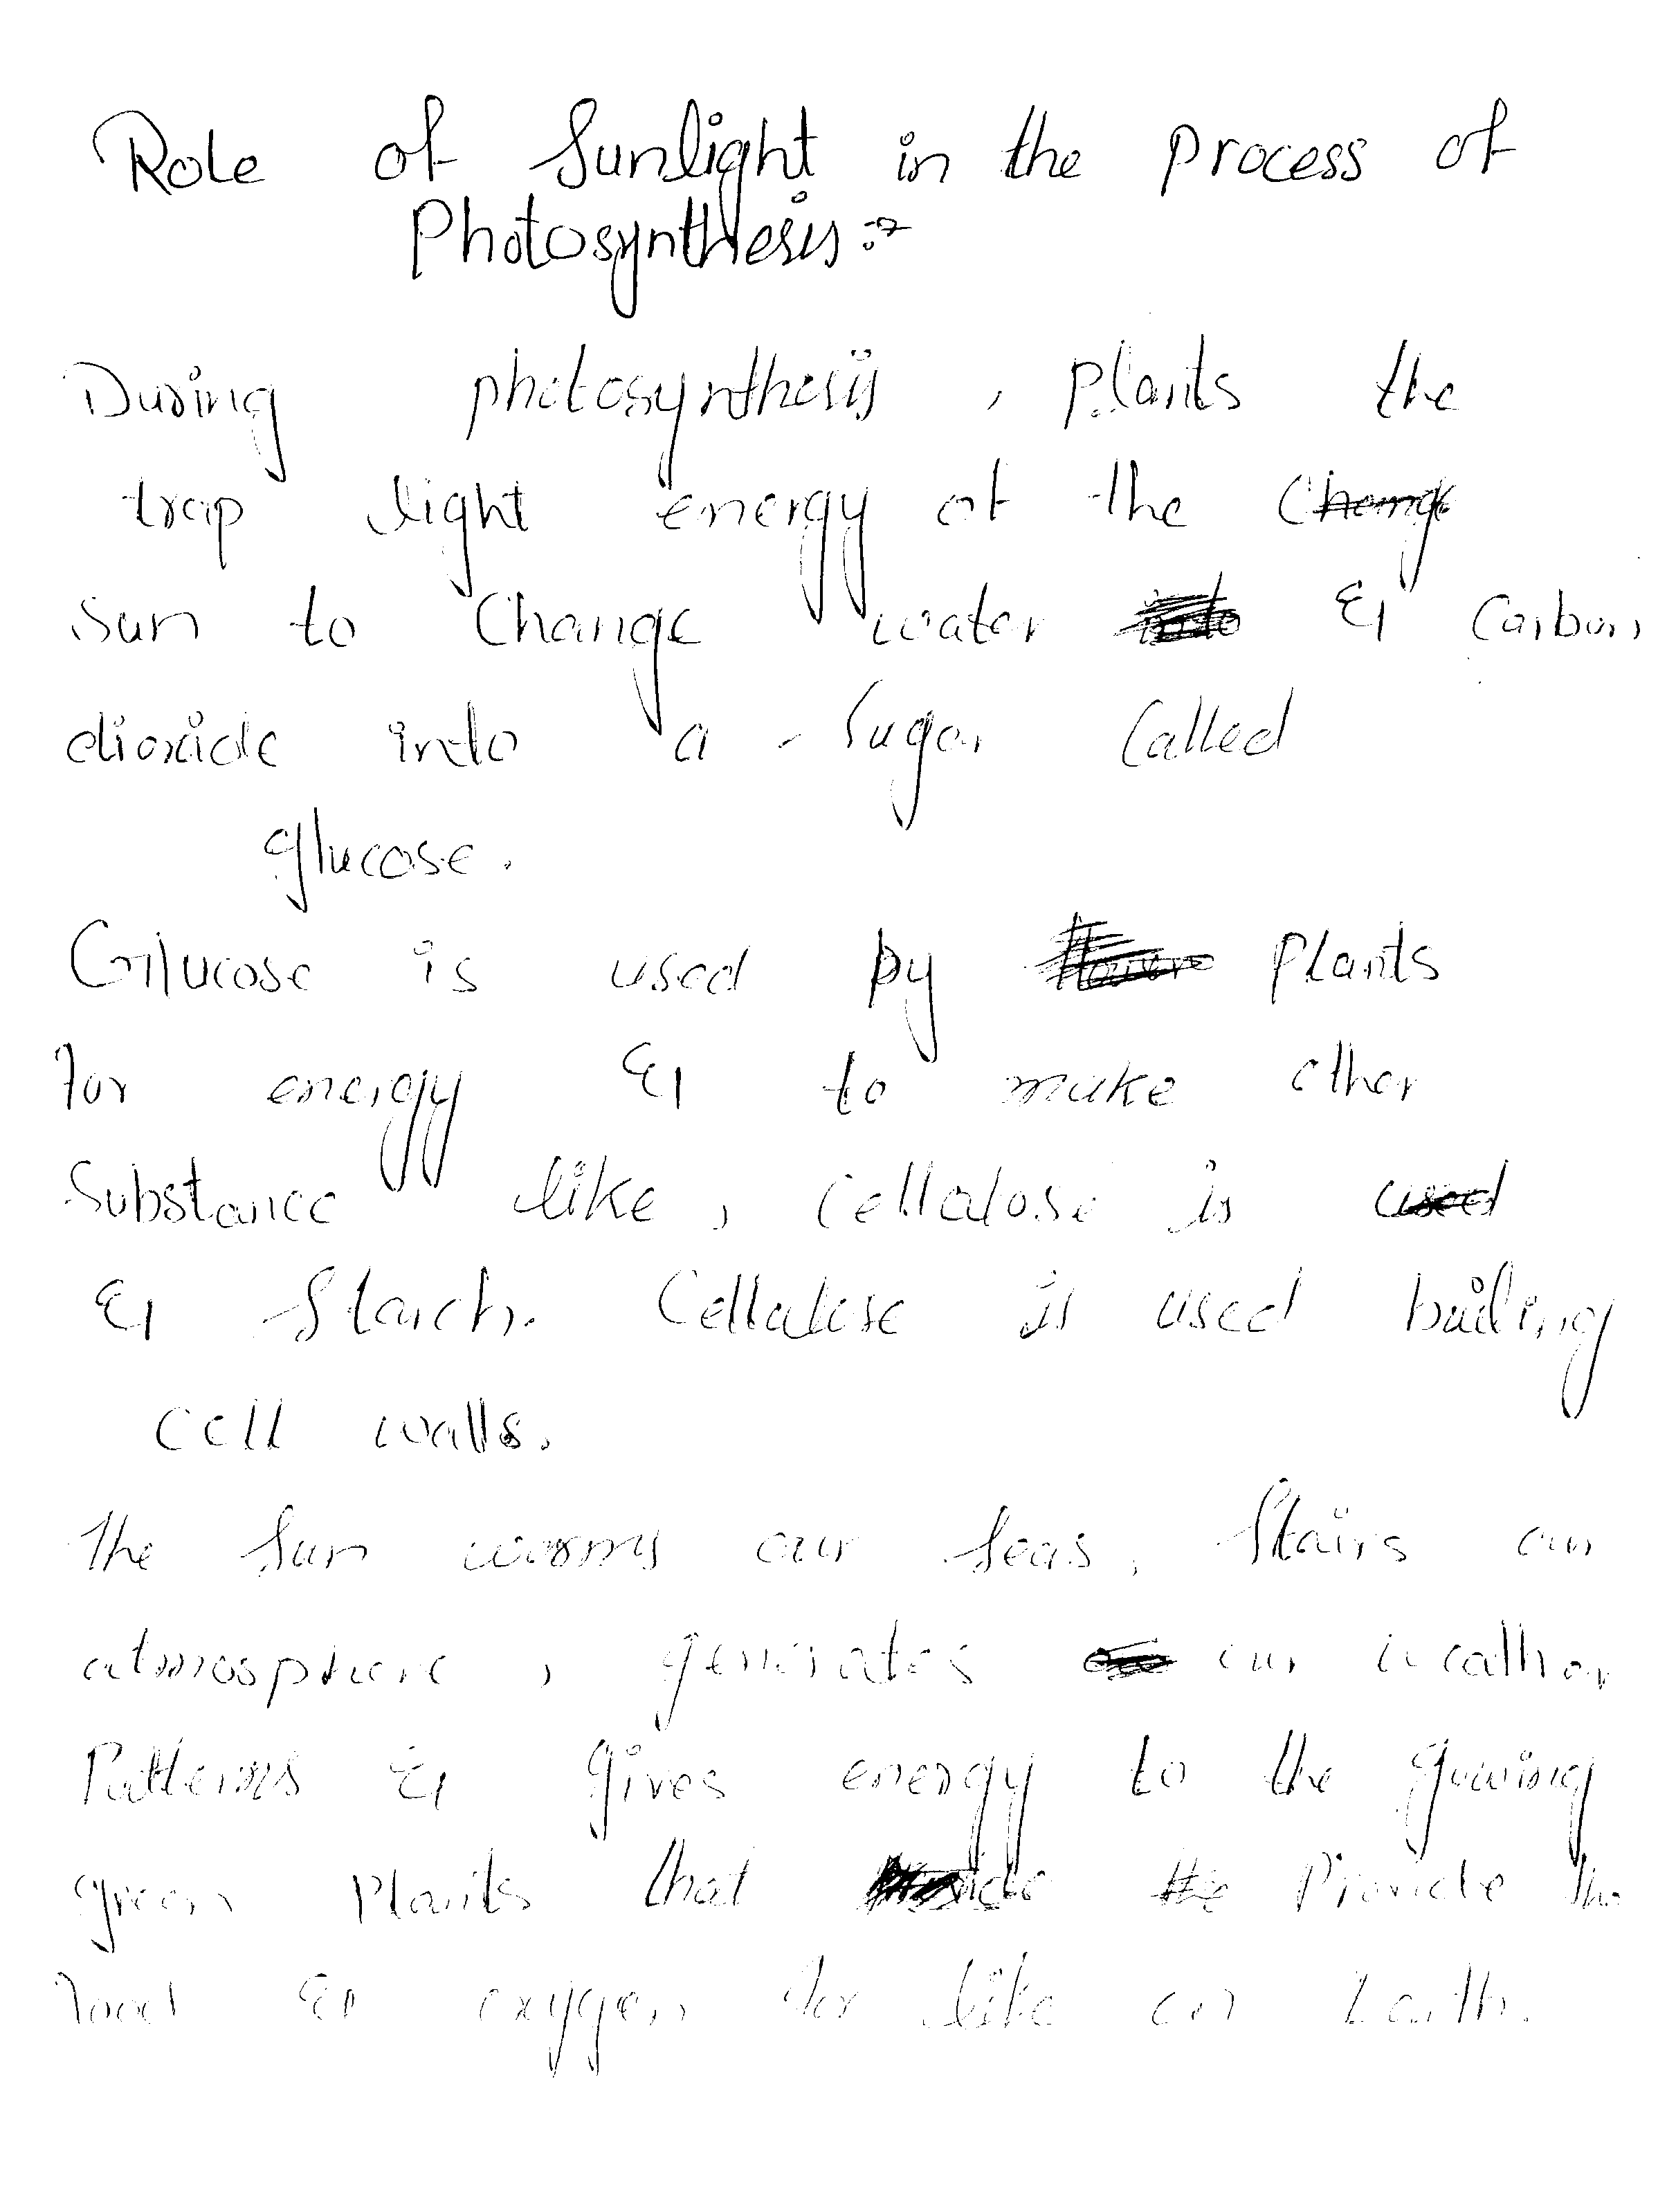 Role of Sunlight in the process of
Photosynthesis:→
During photosynthesis, plants the
trap light energy of the
Sun to Change water & Carbon
dioxide into a Sugar Called
glucose.
Glucose is used by Plants
for energy & to make other
Substance like, Cellalose is
& Starch. Cellalose is used builing
cell walls.
The Sun worms our Seas, Stairs our
atmosphere, generates our weather
Patterns & gives energy to the gowing
green Plants that Provide the
food & oxygen for like on Earth.